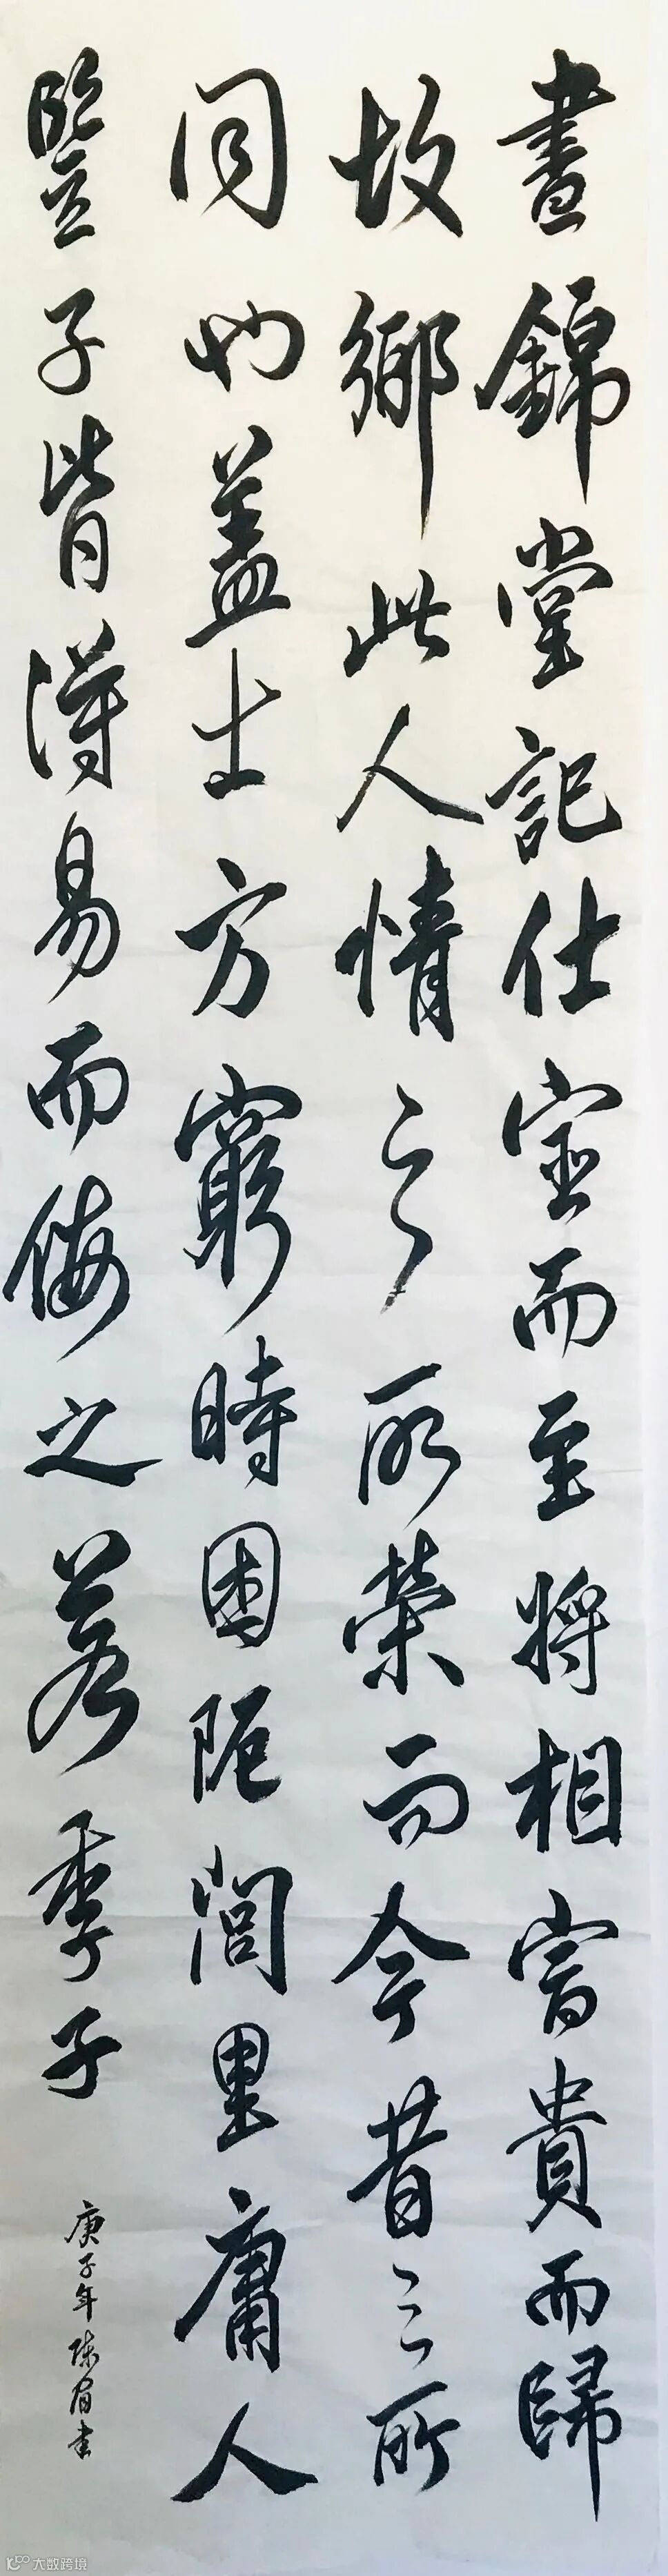 晝錦堂記仕宦而至將相富貴而歸
故鄉此人情之所榮而今昔之所
同也蓋士方窮時困阨閭里庸人
豎子皆得易而侮之若季子
庚子年陈眉書
大数跨境